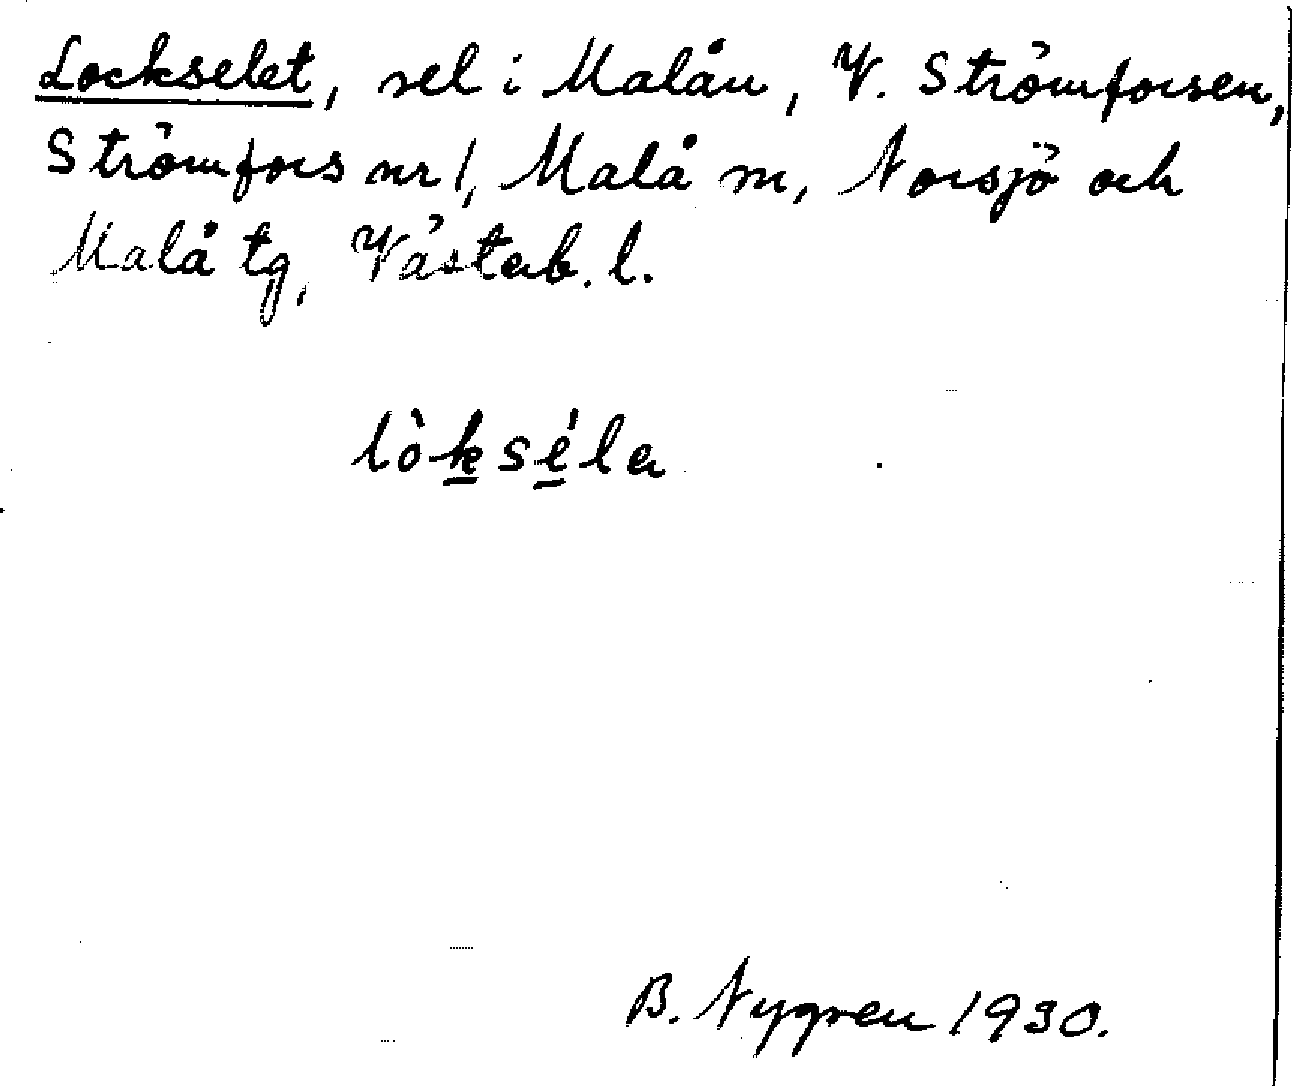 Lockselet, sel i Malån, V. Strömforsen,
Strömfors nr 1, Malå m, Norsjö och
Malå tg, Västerb. l.
lòkséla
B. Nygren 1930.